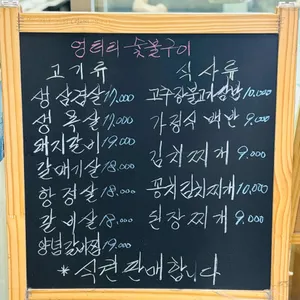 영터리 숯불구이
고기류
생삼겹살 17,000
생목살 17,000
돼지갈비 19,000
갈매기살 18,000
항정살 18,000
갈비살 18,000
양념갈비찜 19,000
식사류
고추장불고기쌈밥 10,000
가정식 백반 9,000
김치찌개 9,000
꽁치김치찌개 10,000
된장찌개 9,000
* 식권판매합니다